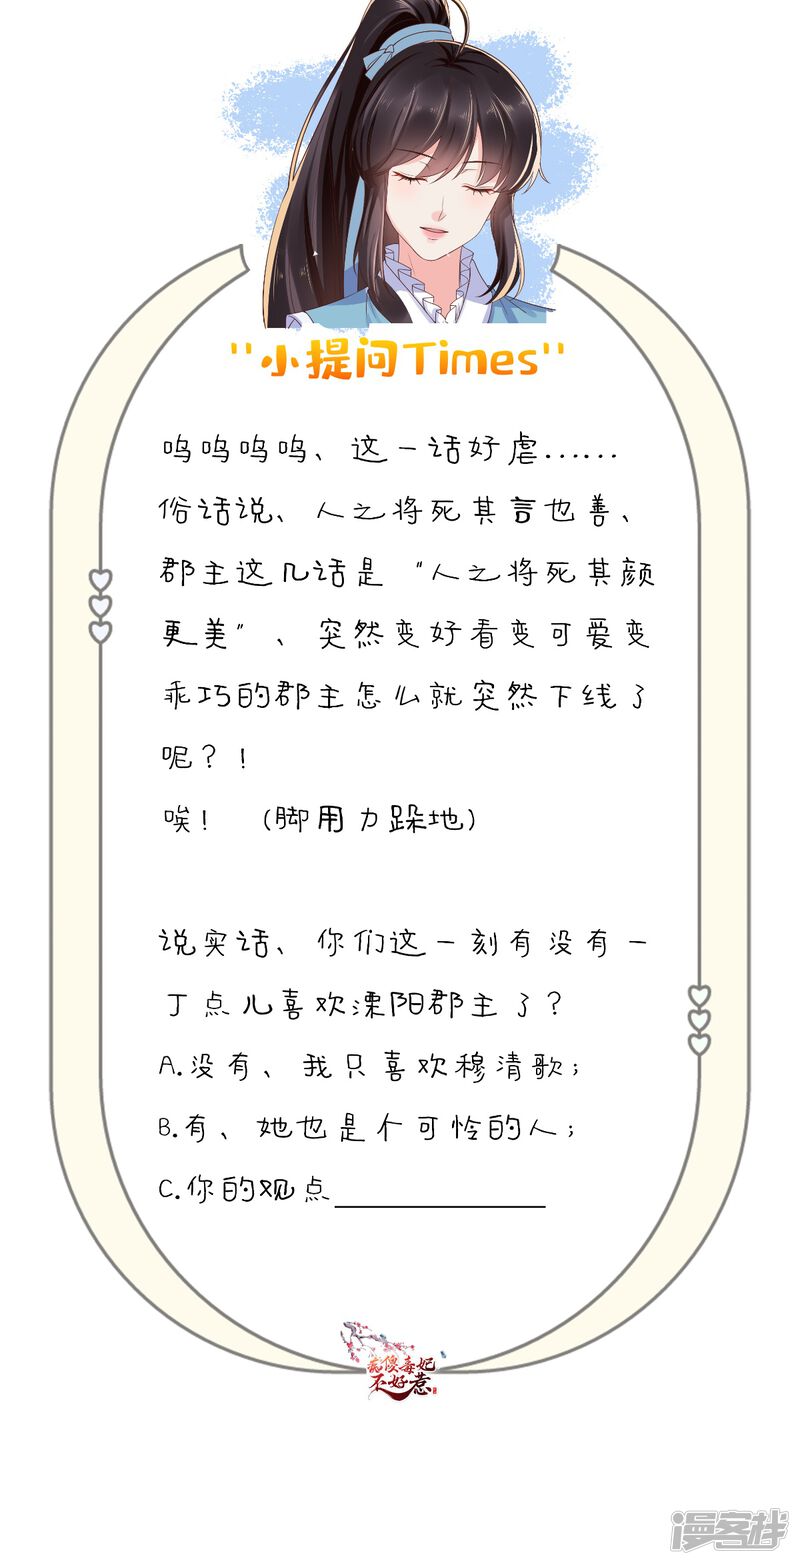 "小提问Times"
呜呜呜呜、这一话好虐……
俗话说、人之将死其言也善、
郡主这几话是“人之将死其颜
更美”、突然变好看变可爱变
乖巧的郡主怎么就突然下线了
呢?!
唉! (脚用力跺地)
说实话、你们这一刻有没有一
丁点儿喜欢溧阳郡主了?
A.没有、我只喜欢穆清歌;
B.有、她也是个可怜的人;
C.你的观点
痴傻毒妃
不好惹
漫客栈